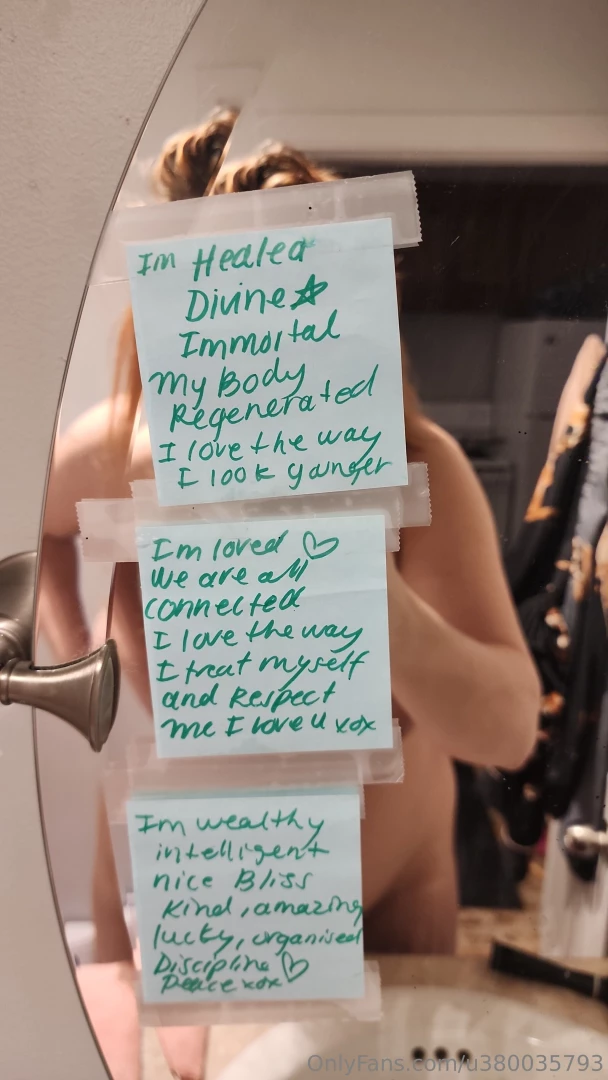 Im Healed
Divine
Immortal
My Body
Regenerated
I love the way
I look younger
Im loved
We are all
connected
I love the way
I treat myself
and Respect
me I love u xox
Im wealthy
intelligent
nice Bliss
Kind, amazing
lucky, organised
Discipline
Peace xox
OnlyFans.com/u380035793